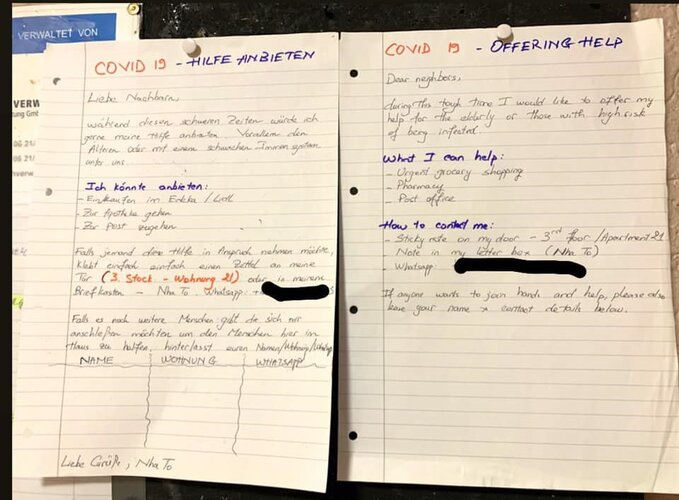 VERWALTET VON
VERW
tung Gmb
06 21/
06 21/
nverw
COVID 19 - HILFE ANBIETEN
Liebe Nachbarn,
während diesen schweren Zeiten würde ich
gerne meine Hilfe anbieten. Vorallem den
Älteren oder mit einem schwachen Immensystem
unter uns.
Ich könnte anbieten:
- Einkaufen im Edeka / Lidl
- Zur Apotheke gehen
- Zur Post zugehen
Falls jemand diese Hilfe in Anspruch nehmen möchte,
klebt einfach einfach einen Zettel an meine
Tür (3. Stock - Wohnung 21) oder in meinem
Briefkasten - Nha To. Whatsapp:
Falls es noch weitere Menschen gibt die sich mir
anschließen möchten um den Menschen hier im
Haus zu helfen, hinterlasst euren Namen/Wohnung/WhatsApp
NAME WOHNUNG WHATSAPP
Liebe Grüße, Nha To
COVID 19 - OFFERING HELP
Dear neighbors,
during this tough time I would like to offer my
help for the elderly or those with high risk
of being infected.
What I can help:
- Urgent grocery shopping
- Pharmacy
- Post office
How to contact me:
- Sticky note on my door - 3rd floor / Apartment 21
- Note in my letter box (Nha To)
- Whatsapp:
If anyone wants to join hands and help, please also
leave your name & contact details below.